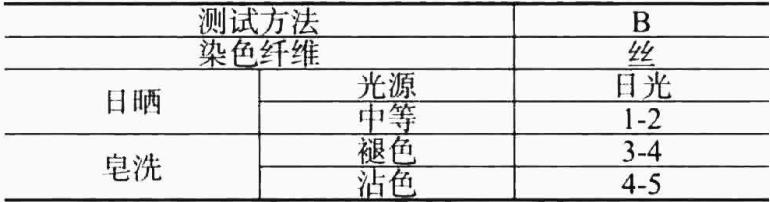 测试方法 B
染色纤维 丝
日晒 光源 日光
中等 1-2
皂洗 褪色 3-4
沾色 4-5